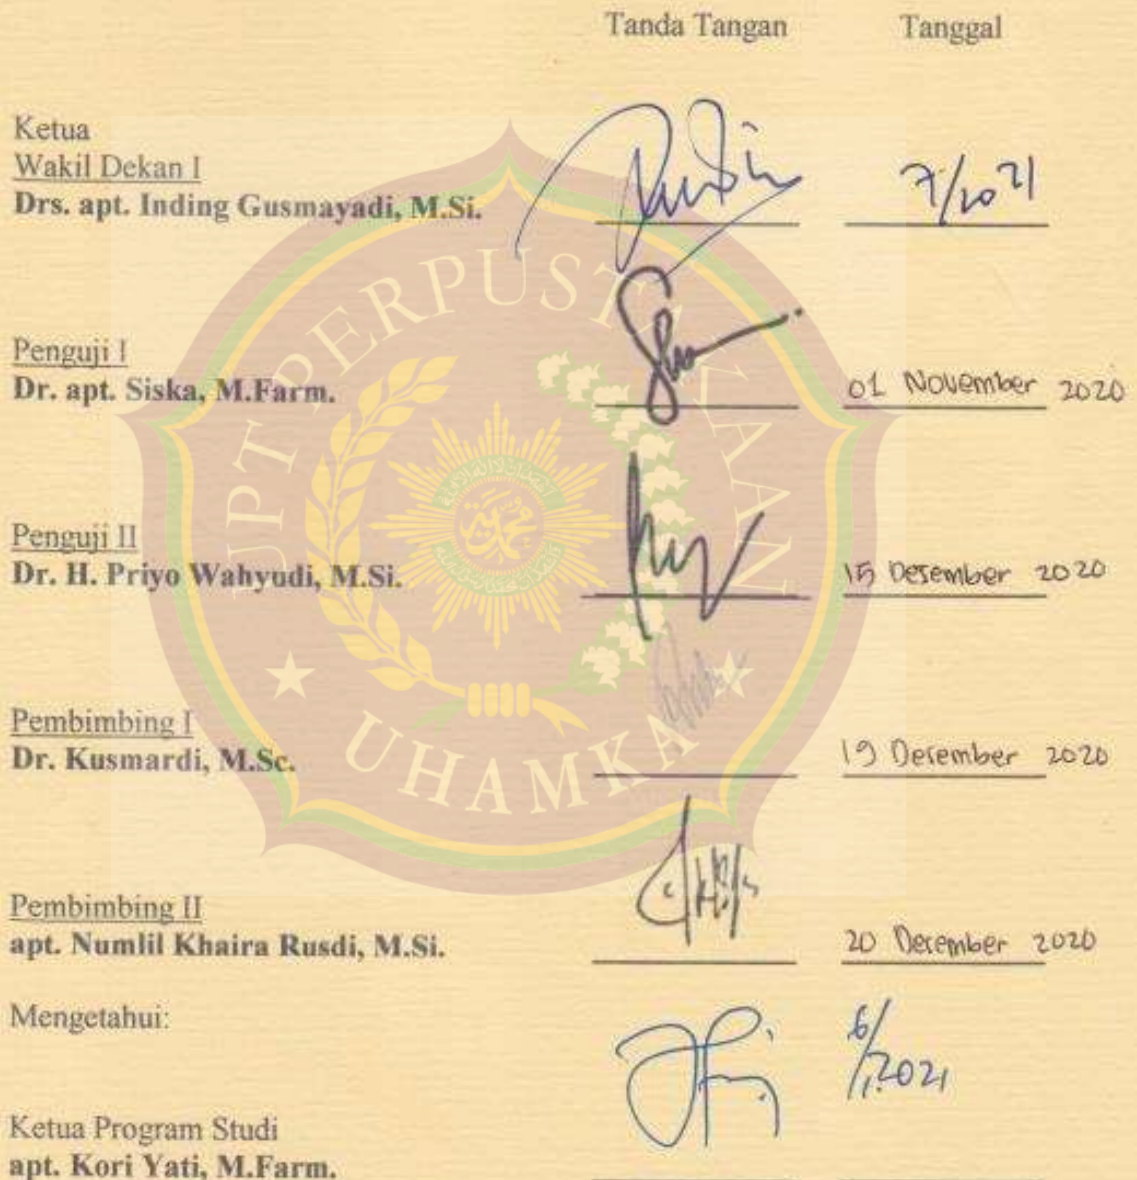 Tanda Tangan Tanggal
Ketua
Wakil Dekan I
Drs. apt. Inding Gusmayadi, M.Si. 7/10 21
UPT PERPUSTAKAAN
Penguji I
Dr. apt. Siska, M.Farm. 01 November 2020
Penguji II
Dr. H. Priyo Wahyudi, M.Si. 15 Desember 2020
Pembimbing I
Dr. Kusmardi, M.Sc. 19 Desember 2020
UHAMKA
Pembimbing II
apt. Numlil Khaira Rusdi, M.Si. 20 Desember 2020
Mengetahui:
6/1 2021
Ketua Program Studi
apt. Kori Yati, M.Farm.